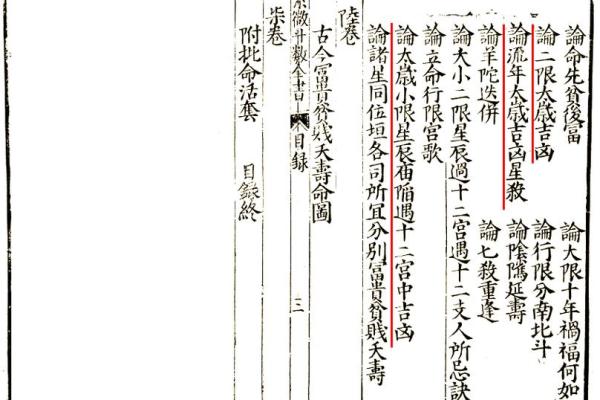 論命先貧後富　論大限十年禍福何如
論二限太歲吉凶　論行限分南北斗
論流年太歲吉凶星殺　論陰隲延壽
論羊陀迭併　論七殺重逢
論大小二限星辰過十二宮遇十二支人所忌訣
論立命行限宮歌
論太歲小限星辰庙陷遇十二宮中吉凶
論諸星同位垣各司所宜分別富貴貧賤夭壽
陸卷
古今富貴貧賤夭壽命圖
微斗数全書　目录　三
柒卷
附批命活套　目録終